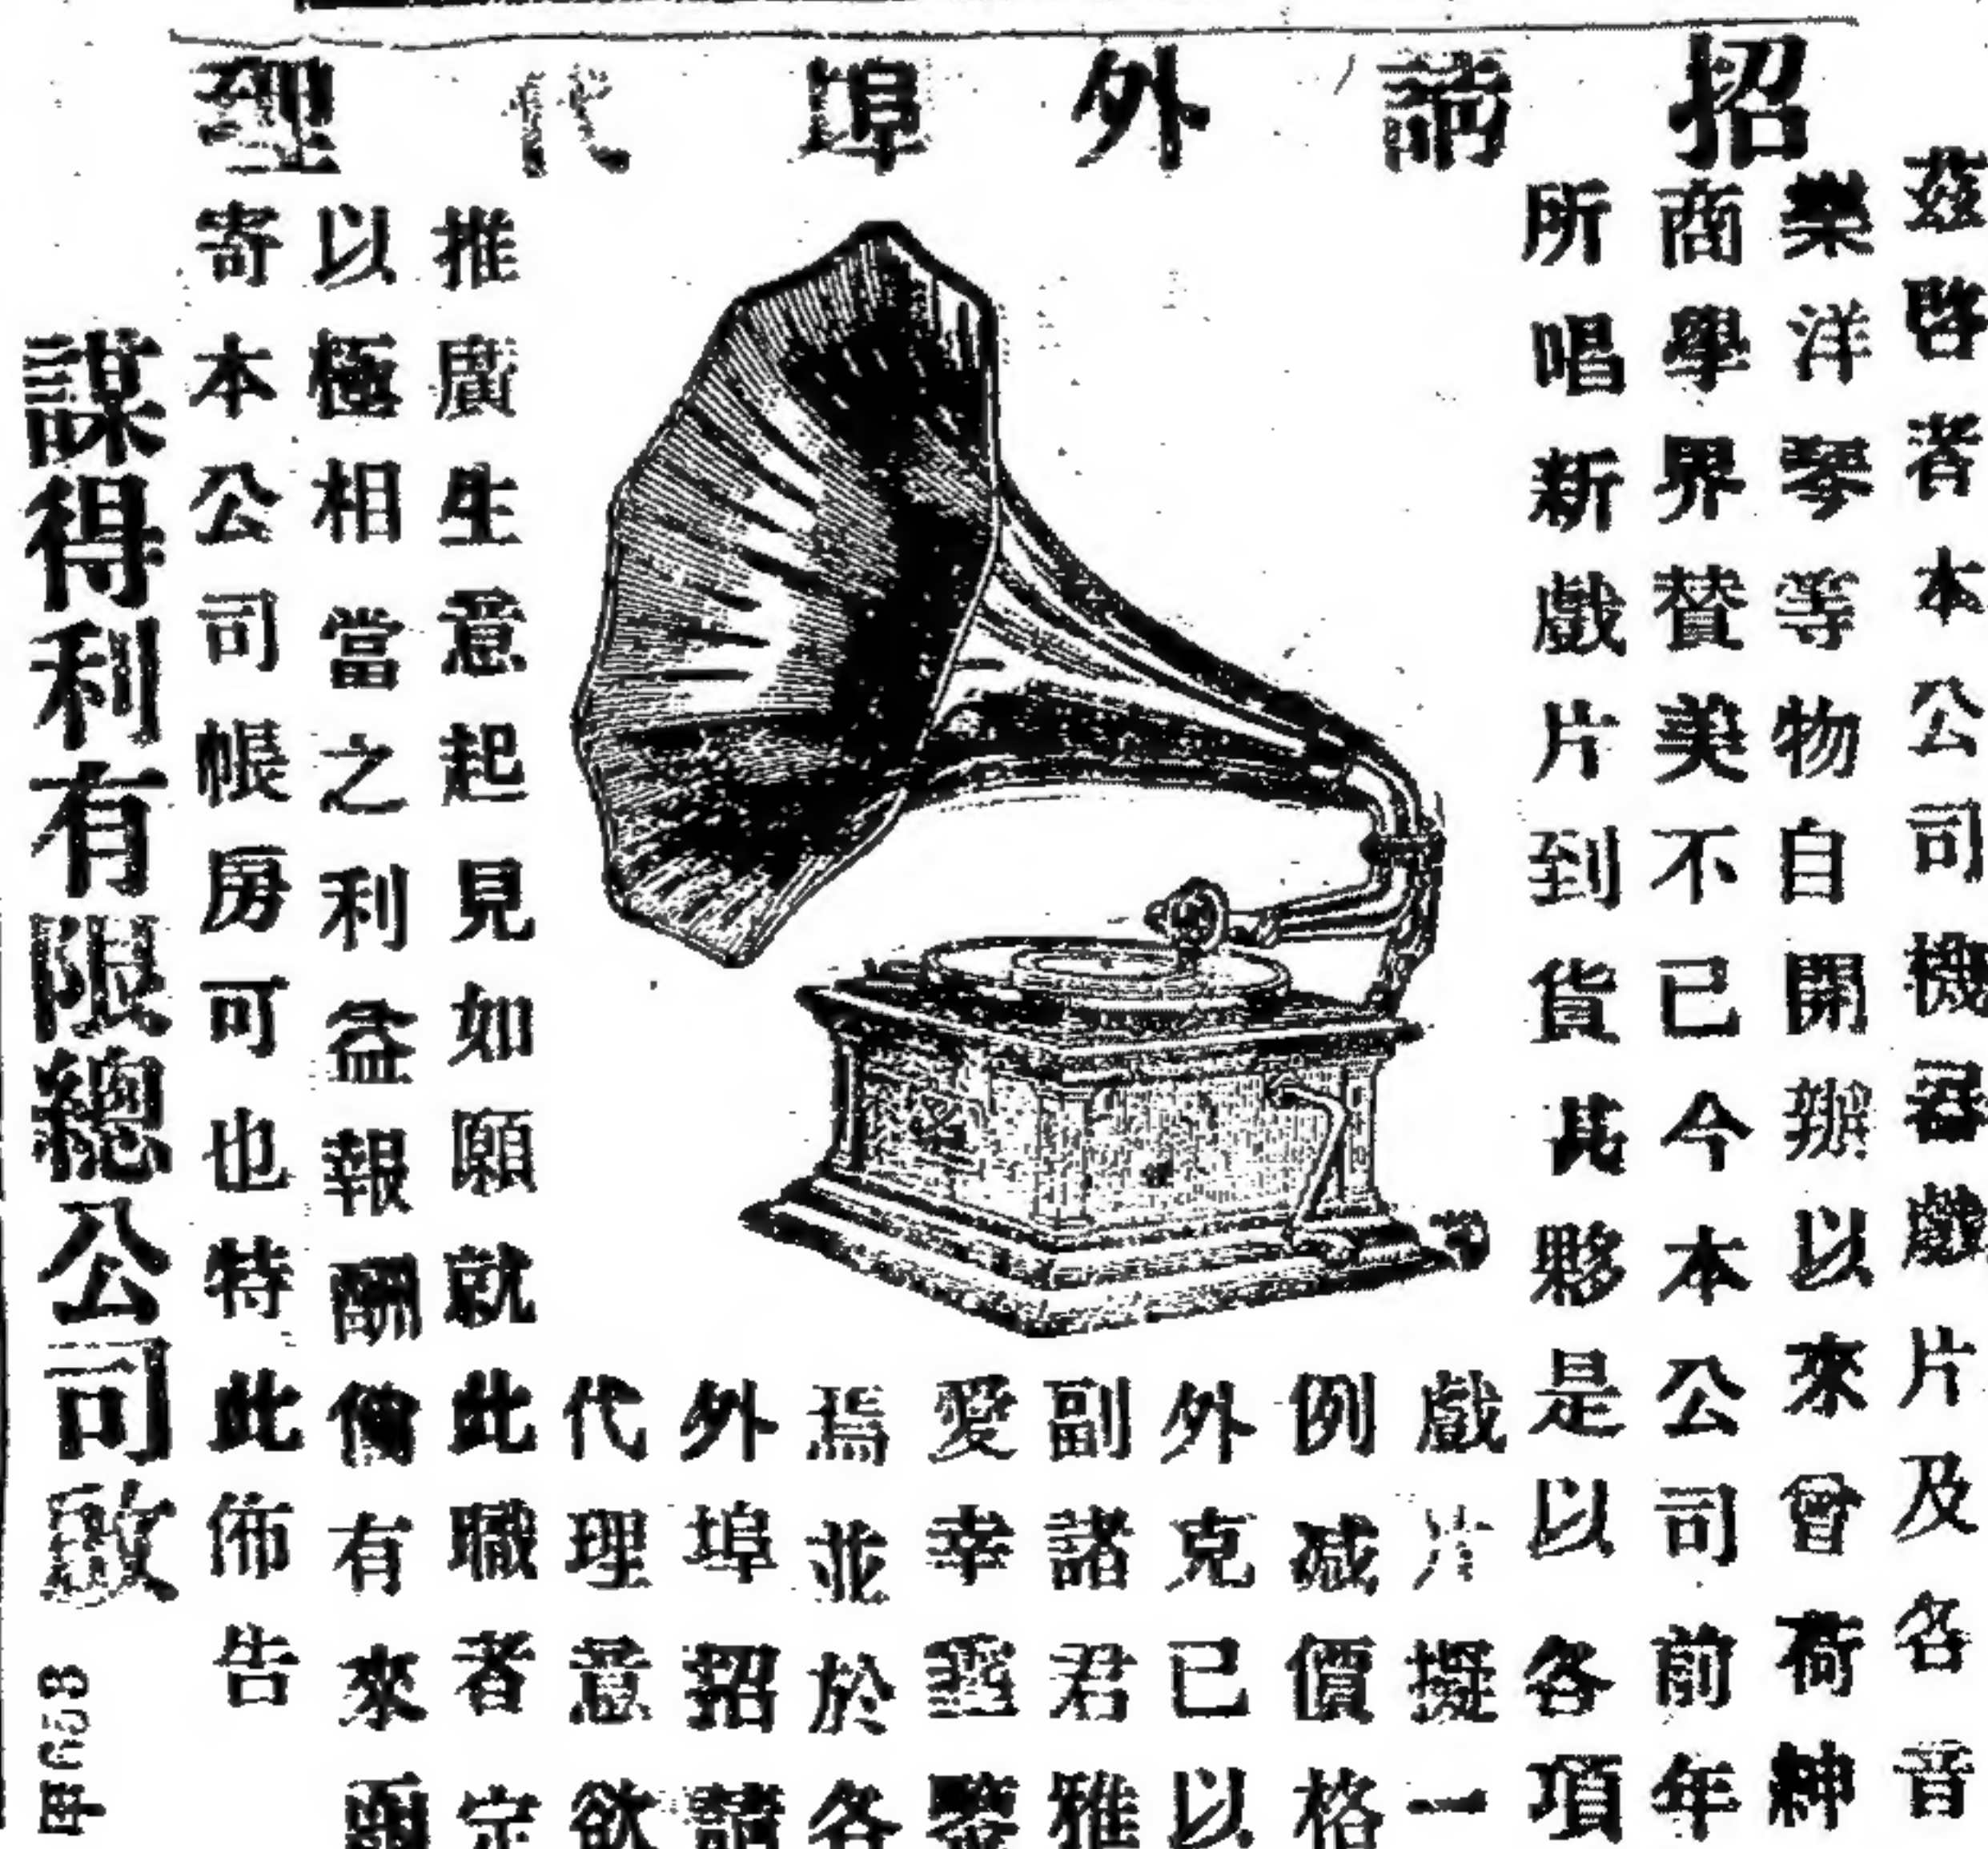 招請外埠代理
茲啓者本公司機器戲片及各音
樂洋琴等物自開辦以來曾荷紳
商學界贊美不已今本公司前年
所唱新戲片到貨甚夥是以各項
戲片擬一
例減價格
外克已以
副諸君雅
愛幸鑒
焉並於各
外埠招請
代理意欲
推廣生意起見如願就此職者定
以極相當之利益報酬倘有來函
寄本公司帳房可也特此佈告
謀得利有限總公司啟